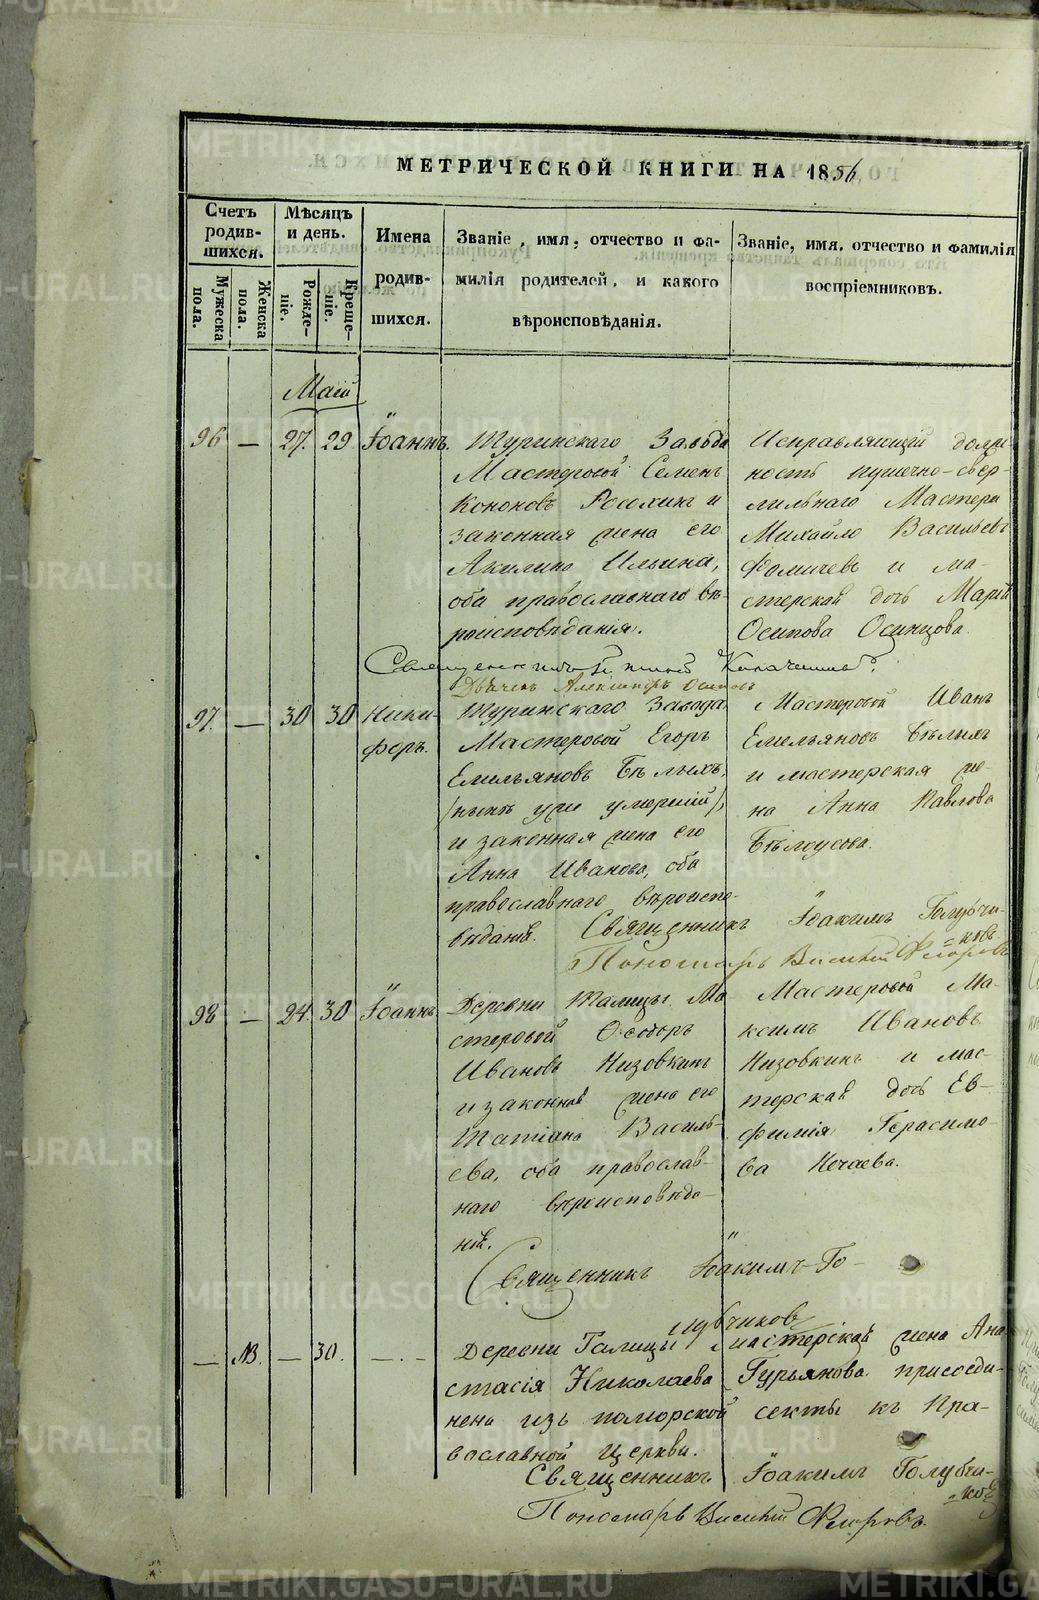 МЕТРИЧЕСКОЙ КНИГИ НА 1856
Счетъ родив- шихся.
Мѣсяцъ и день.
Имена родив- шихся.
Званіе, имя, отчество и фа-
милія родителей, и какого
вѣроисповѣданія.
Званіе, имя, отчество и фамилія
воспріемниковъ.
Мужеска пола.
Женска пола.
Рожде- ніе.
Креще- ніе.
Маій
96 — 27. 29 Іоаннъ.
Туринскаго Завода
Мастеровой Семенъ
Кононовъ Росохинъ и
законная жена его
Акилина Ильина,
оба православнаго вѣ-
роисповѣданія.
Исправляющій долж-
ность пушечно-свер-
лильнаго Мастера
Михайло Васильевъ
Фомичевъ и ма-
стерская дочь Марія
Осипова Осинцова.
Священникъ
97. — 30 30 Ники-
форъ.
Туринскаго Завода
Мастеровой Егоръ
Емельяновъ Бѣлыхъ,
(нынѣ уже умершій),
и законная жена его
Анна Иванова, оба
православнаго вѣроиспо-
вѣданія.
Мастеровой Иванъ
Емельяновъ Бѣлыхъ
и мастерская же-
на Анна Павлова
Бѣлоусова.
Священникъ Іоакимъ Голубчи-
=ковъ
Пономарь Василій Флоровъ
98 — 24. 30 Іоаннъ
Деревни Талицы Ма
стеровой Ѳеодоръ
Ивановъ Низовкинъ
и законная жена его
Татіана Василь-
ева, оба православ-
наго вѣроисповѣда-
нія.
Мастеровой Ма-
ксимъ Ивановъ
Низовкинъ и мас-
терская дочь Ев-
фимія Герасимо-
ва Нечаева.
Священникъ Іоакимъ Го-
лубчиковъ
— NB. — 30. — . —
Деревни Талицы мастерская жена Ана
стасія Николаева Гурьянова присоеди-
нена изъ поморской секты къ Пра-
вославной Церкви.
Священникъ Іоакимъ Голубчи-
=ковъ
Пономарь Василій Флоровъ.
METRIKI.GASO-URAL.RU